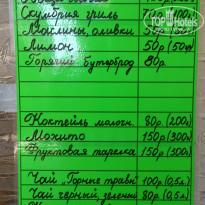 Скумбрия гриль
Маслины, оливки
Лимон 50р (50гр
Горячий бутерброд 80р.
TopHotels
Коктейль молочн. 80р. (200г
Мохито 150р (300г
Фруктовая тарелка 150р. (300г
Чай "Горные травы" 100р (0,5л.)
Чай черный, зеленый 80р (0,5л.)